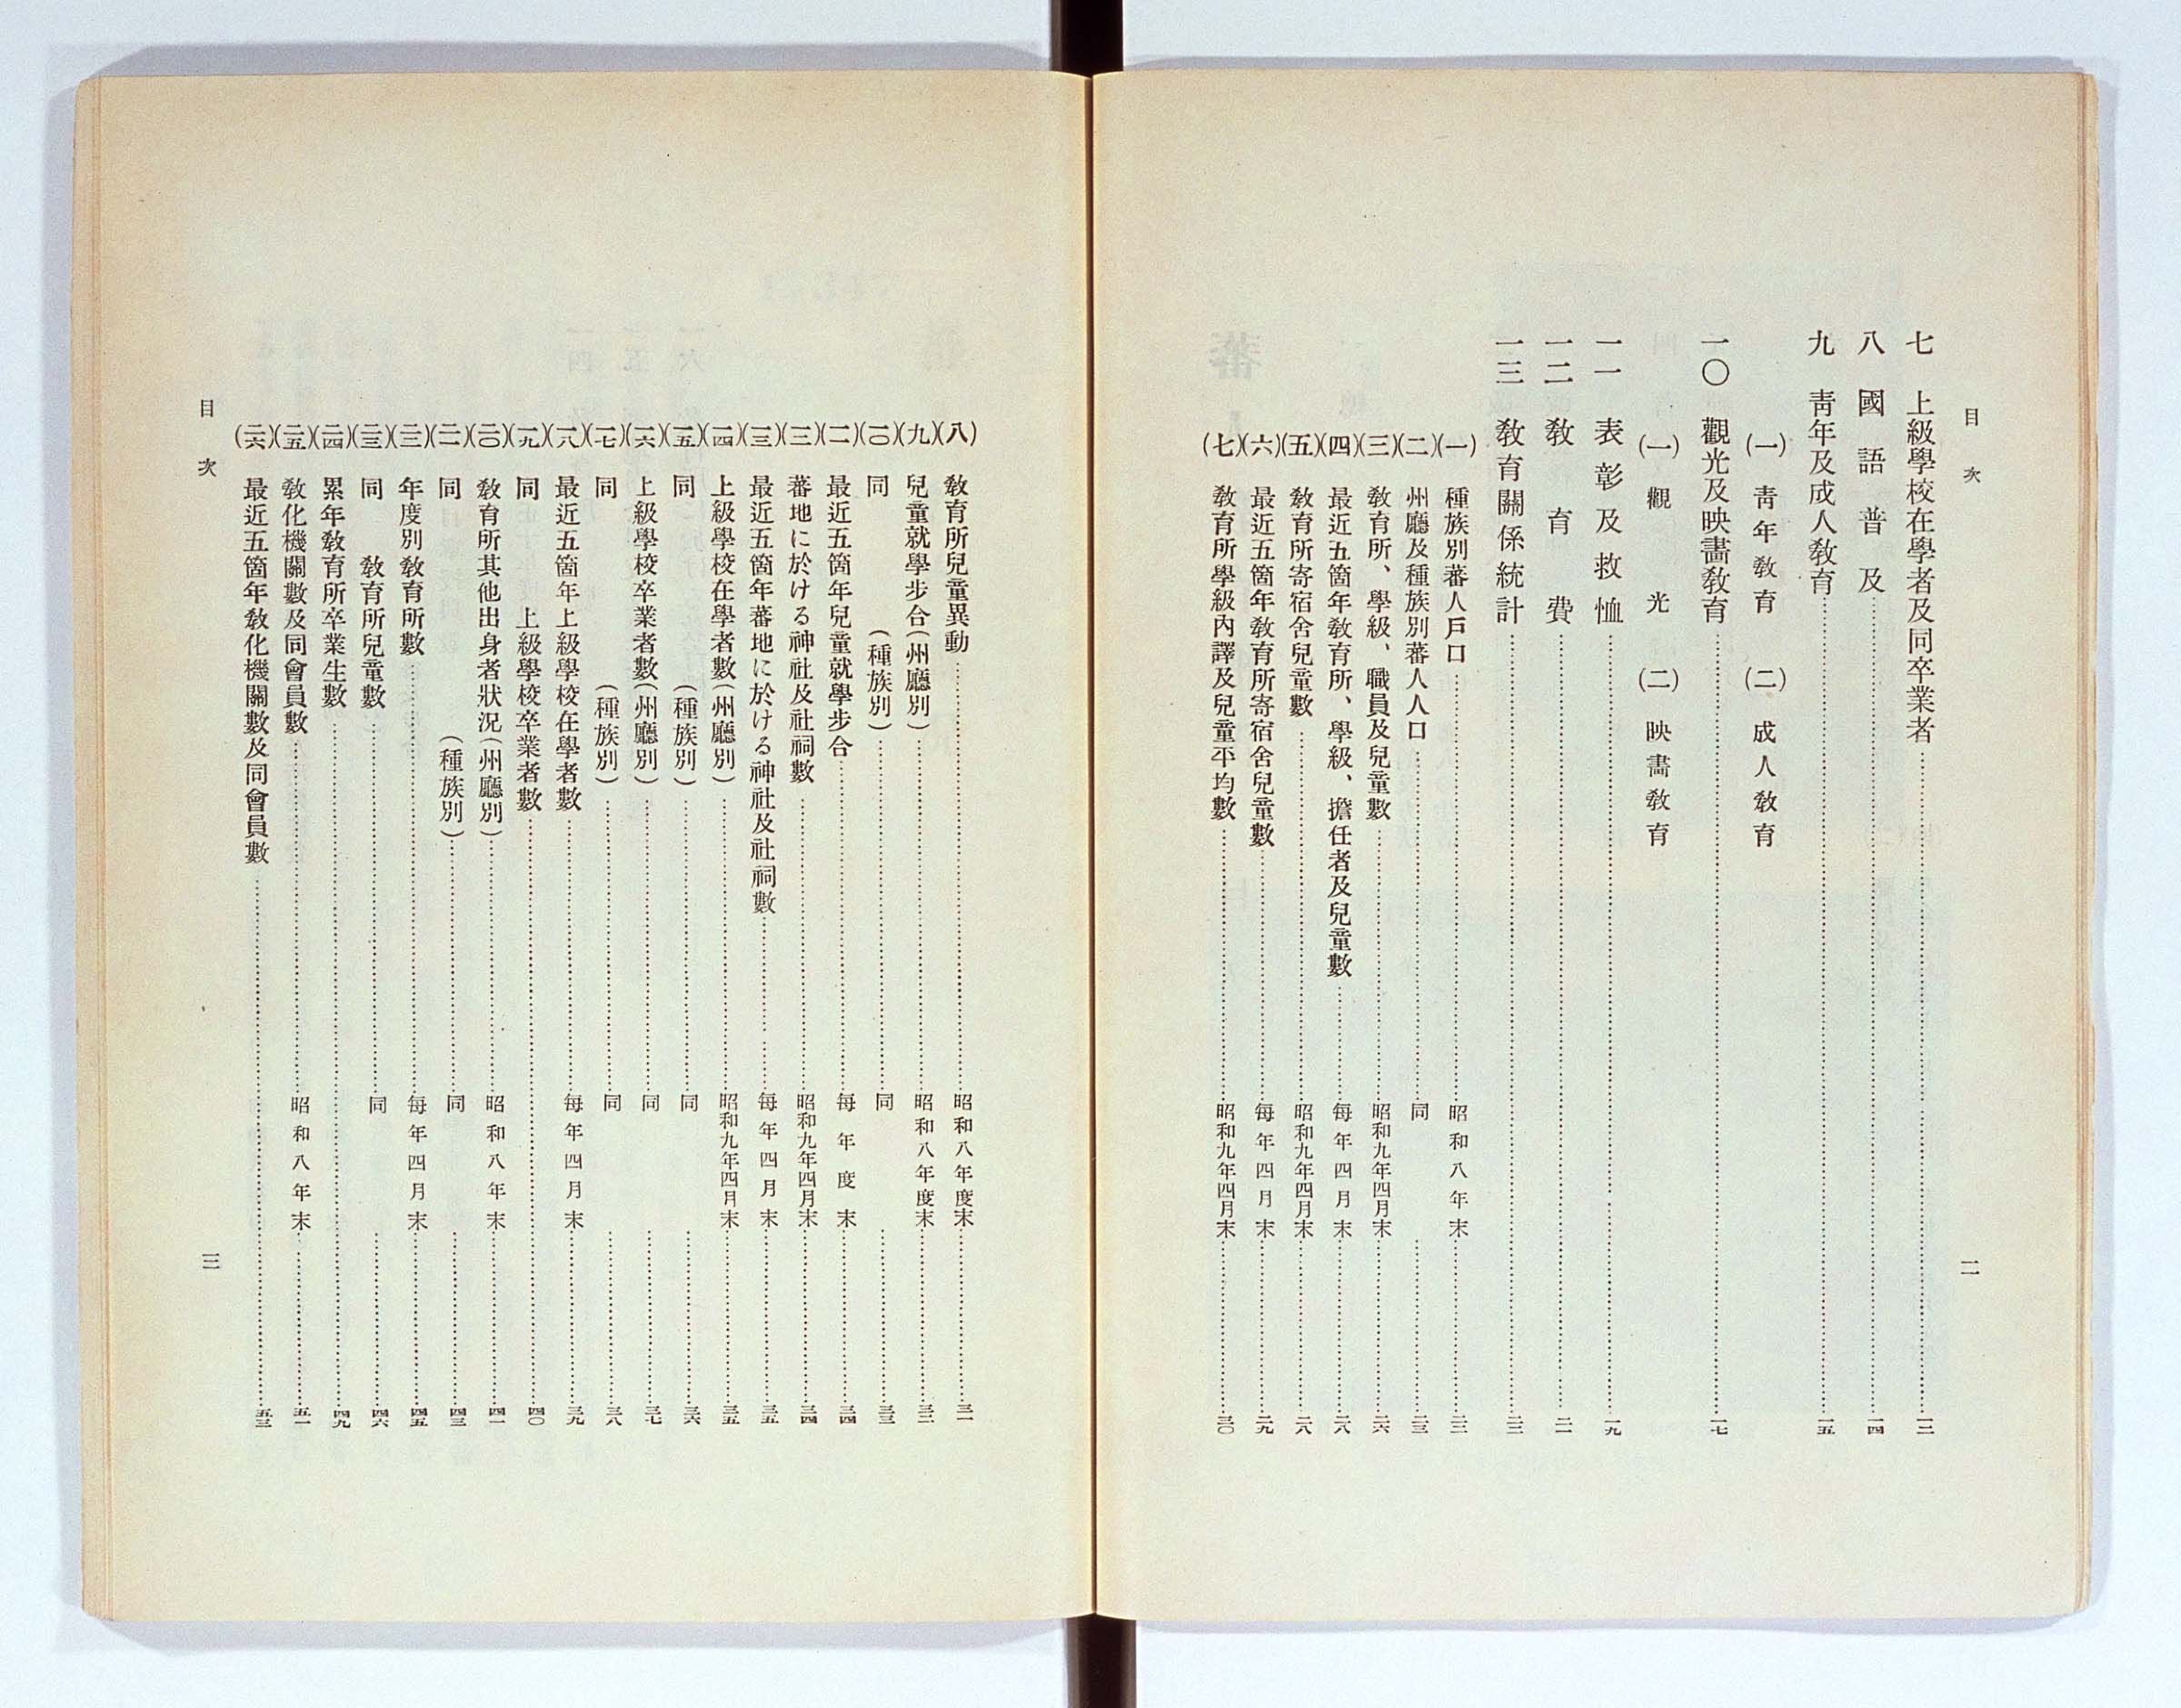 目次
二
七 上級學校在學者及同卒業者……一二
八 國語普及……一四
九 靑年及成人敎育……一五
(一) 靑年敎育 (二) 成人敎育
一〇 觀光及映畵敎育……一七
(一) 觀光 (二) 映畵敎育
一一 表彰及救恤……一九
一二 敎育費……二一
一三 敎育關係統計……二二
(一) 種族別蕃人戶口……昭和八年末……二二
(二) 州廳及種族別蕃人人口……同……二三
(三) 敎育所、學級、職員及兒童數……昭和九年四月末……二六
(四) 最近五箇年敎育所、學級、擔任者及兒童數……每年四月末……二八
(五) 敎育所寄宿舍兒童數……昭和九年四月末……二八
(六) 最近五箇年敎育所寄宿舍兒童數……每年四月末……二九
(七) 敎育所學級內譯及兒童平均數……昭和九年四月末……三〇
(八) 敎育所兒童異動……昭和八年度末……三一
(九) 兒童就學步合(州廳別)……昭和八年度末……三二
(一〇) 同 (種族別)……同……三三
(一一) 最近五箇年兒童就學步合……每年度末……三四
(一二) 蕃地に於ける神社及社祠數……昭和九年四月末……三四
(一三) 最近五箇年蕃地に於ける神社及社祠數……每年四月末……三五
(一四) 上級學校在學者數(州廳別)……昭和九年四月末……三五
(一五) 同 (種族別)……同……三六
(一六) 上級學校卒業者數(州廳別)……同……三七
(一七) 同 (種族別)……同……三八
(一八) 最近五箇年上級學校在學者數……每年四月末……三九
(一九) 同 上級學校卒業者數……四〇
(二〇) 敎育所其他出身者狀況(州廳別)……昭和八年末……四一
(二一) 同 (種族別)……同……四三
(二二) 年度別敎育所數……每年四月末……四五
(二三) 同 敎育所兒童數……同……四六
(二四) 累年敎育所卒業生數……四九
(二五) 敎化機關數及同會員數……昭和八年末……五一
(二六) 最近五箇年敎化機關數及同會員數……五三
目次
三